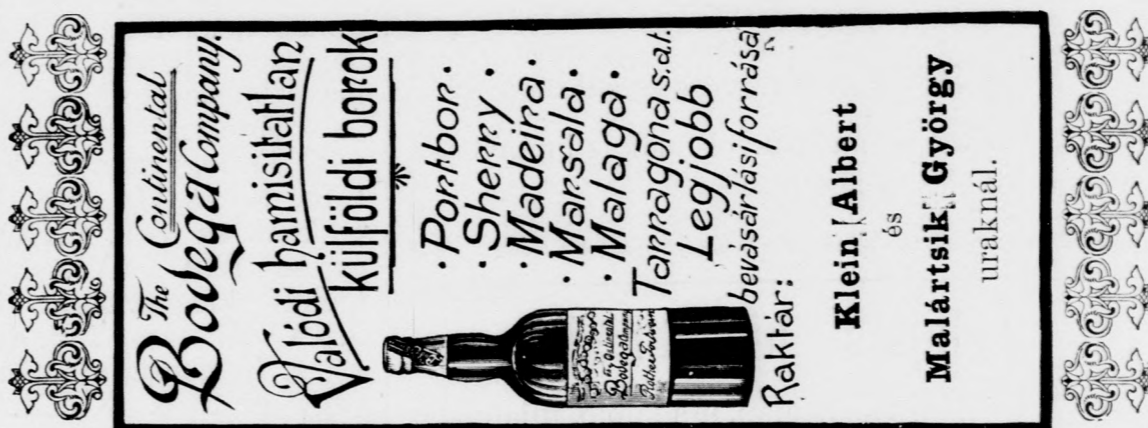 The Continental
Bodega Company.
Valódi hamisitatlan
külföldi borok
· Portbor ·
· Sherry ·
· Madeira ·
· Marsala ·
· Malaga ·
Tarragona s.a.t.
Legjobb
bevásárlási forrása
Raktár:
Klein Albert
és
Malártsik György
uraknál.
The Continental
Bodega Company